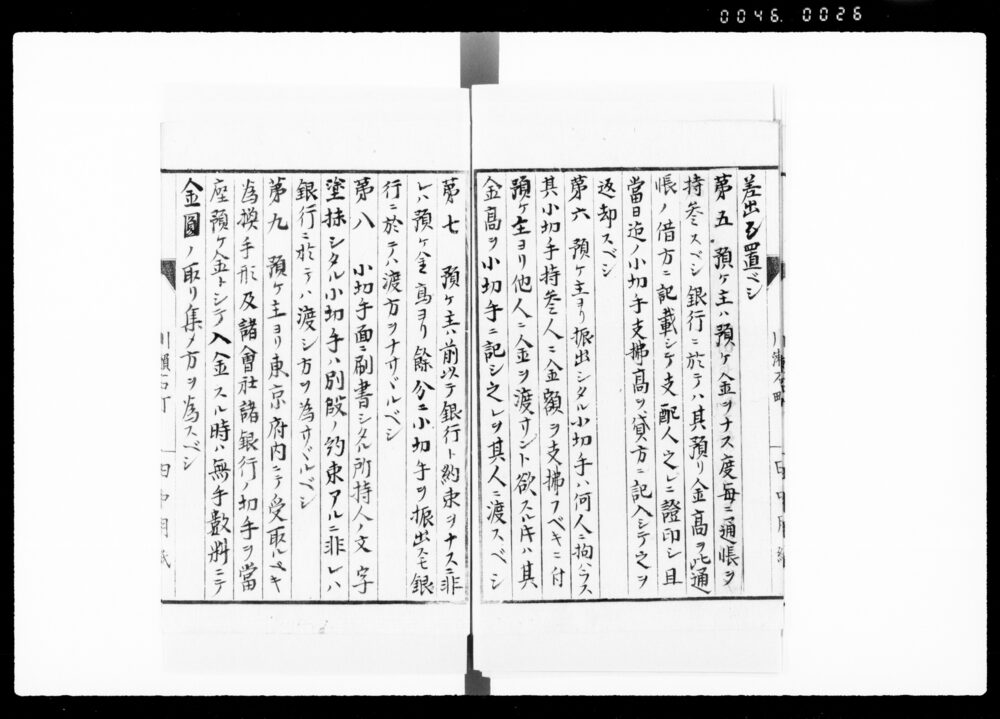 0046. 0026
差出シ置ベシ
第五　預ケ主ハ預ケ金ヲナス度毎ニ通帳ヲ
持参スベシ銀行ニ於テハ其預リ金高ヲ此通
帳ノ借方ニ記載シテ支配人之レニ證印シ且
當日迠ノ小切手支拂高ヲ貸方ニ記入シテ之ヲ
返却スベシ
第六　預ケ主ヨリ振出シタル小切手ハ何人ニ拘ハラス
其小切手持参人ニ金額ヲ支拂フベキニ付
預ケ主ヨリ他人ニ金ヲ渡サント欲スル片ハ其
金高ヲ小切手ニ記シ之レヲ其人ニ渡スベシ
第七　預ケ主ハ前以テ銀行ト約束ヲナスニ非
レハ預ケ金高ヨリ餘分ニ小切手ヲ振出スモ銀
行ニ於テハ渡方ヲナサヾルベシ
第八　小切手面ニ刷書シタル所持人ノ文字
塗抹シタル小切手ハ別段ノ約束アルニ非レハ
銀行ニ於テハ渡シ方ヲ為サヾルベシ
第九　預ケ主ヨリ東京府内ニテ受取ルベキ
為換手形及諸會社諸銀行ノ切手ヲ當
座預ケ金トシテ入金スル時ハ無手數料ニテ
金圓ノ取リ集メ方ヲ為スベシ
川瀬石町
田中用紙